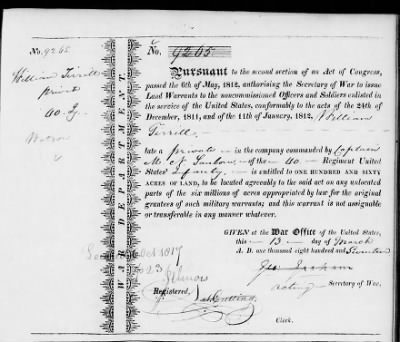 No. 9265
William Tirrill
privat
No. 9265
WAR DEPARTMENT.
Pursuant to the second section of an Act of Congress,
passed the 6th of May, 1812, authorising the Secretary of War to issue
Land Warrants to the noncommissioned Officers and Soldiers enlisted in
the service of the United States, conformably to the acts of the 24th of
December, 1811, and of the 11th of January, 1812, William
Tirrill
late a private in the company commanded by Captain
of the 40 Regiment United
States' Infantry is entitled to ONE HUNDRED AND SIXTY
ACRES OF LAND, to be located agreeably to the said act on any unlocated
parts of the six millions of acres appropriated by law for the original
grantees of such military warrants; and this warrant is not assignable
or transferable in any manner whatever.
GIVEN at the War Office of the United States,
this 13 day of March
A. D. one thousand eight hundred and Seventeen
Geo: Graham
acting Secretary of War.
Oct 1817
23
Illinois
Registered,
Clerk.